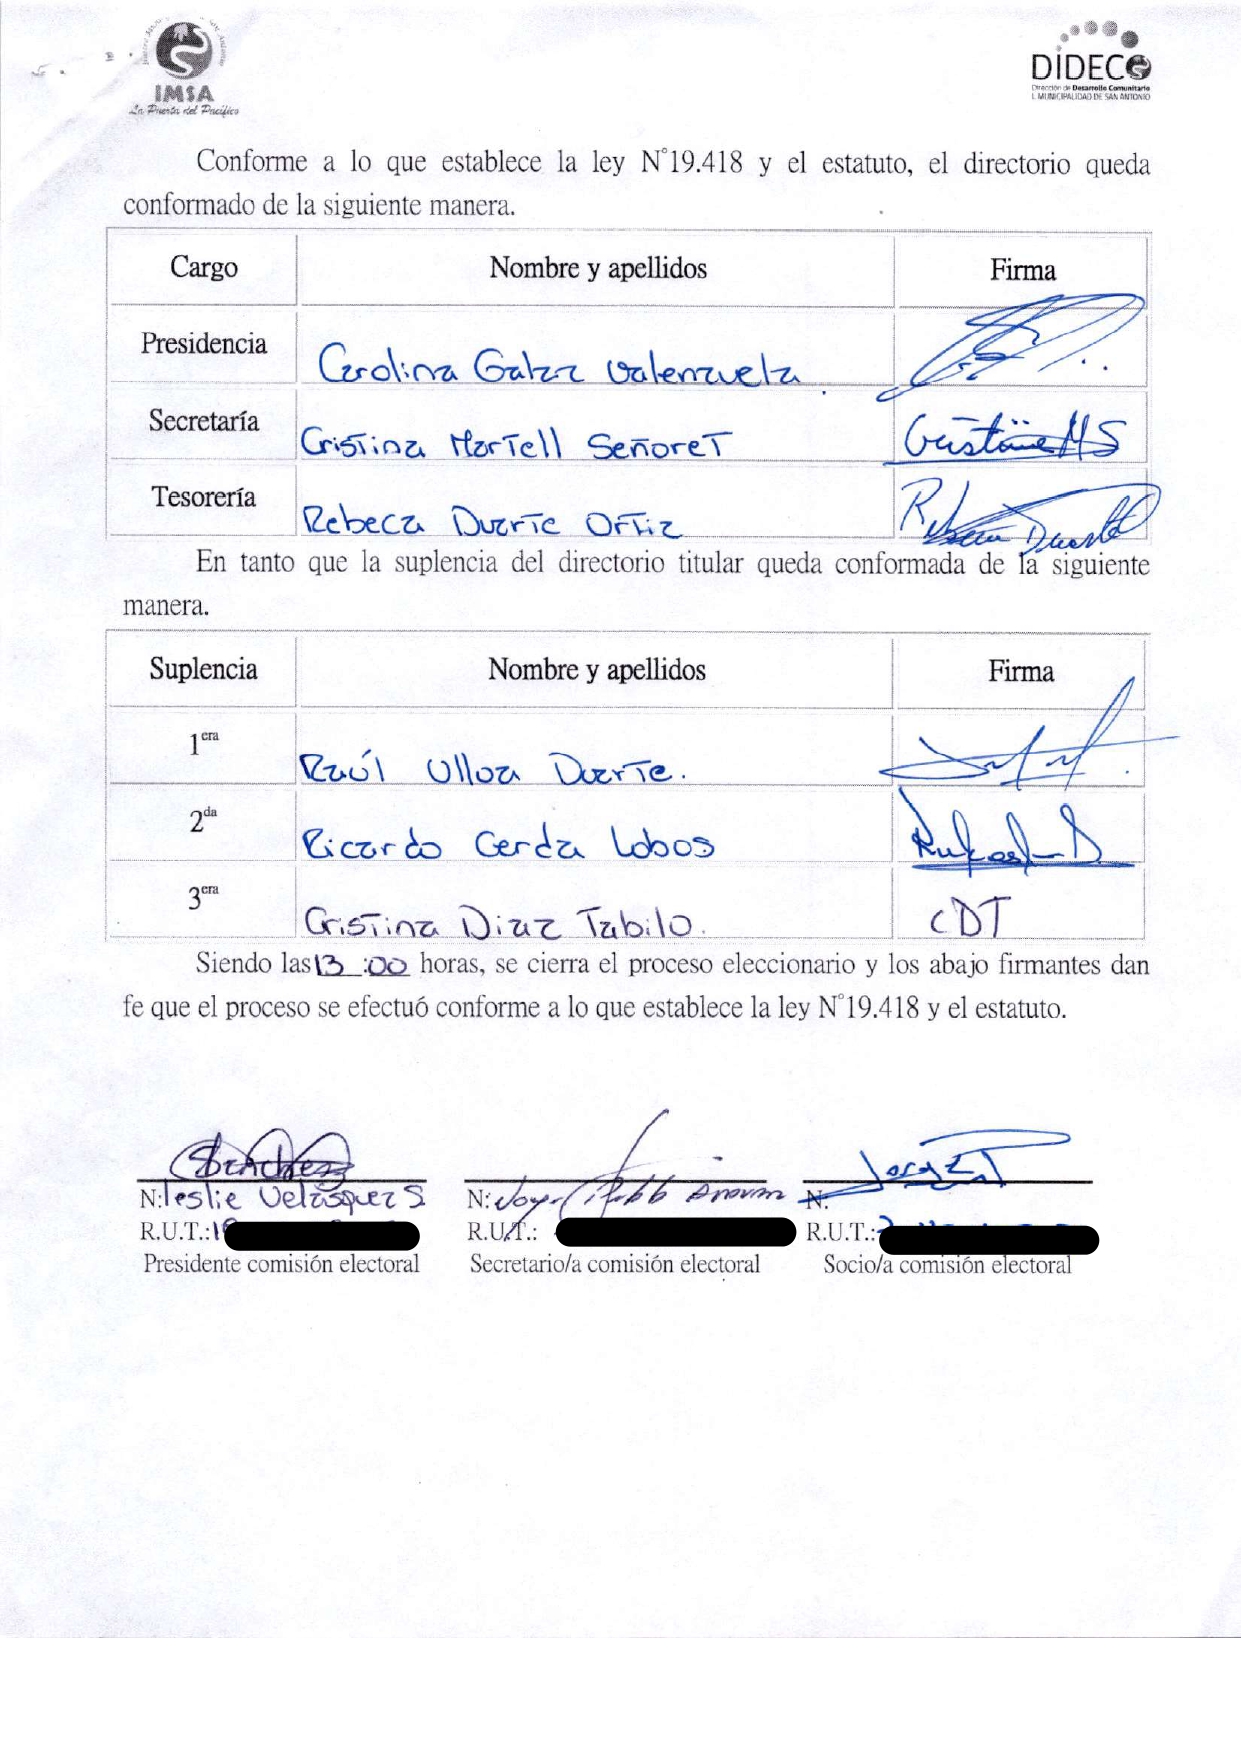 IMSA
La Puerta del Pacífico
DIDECO
Dirección de Desarrollo Comunitario
I. MUNICIPALIDAD DE SAN ANTONIO
Conforme a lo que establece la ley N°19.418 y el estatuto, el directorio queda
conformado de la siguiente manera.
Cargo Nombre y apellidos Firma
Presidencia Carolina Galaz Valenzuela
Secretaría Cristina Martell Señoret Cristina M S
Tesorería Rebeca Duarte Ortiz Rebeca Duarte
En tanto que la suplencia del directorio titular queda conformada de la siguiente
manera.
Suplencia Nombre y apellidos Firma
1era Raúl Ulloa Duarte.
2da Ricardo Cerda Lobos
3era Cristina Diaz Tabilo. CDT
Siendo las 13:00 horas, se cierra el proceso eleccionario y los abajo firmantes dan
fe que el proceso se efectuó conforme a lo que establece la ley N°19.418 y el estatuto.
N: Leslie Velásquez S N: N:
R.U.T.: R.U.T.: R.U.T.:
Presidente comisión electoral Secretario/a comisión electoral Socio/a comisión electoral